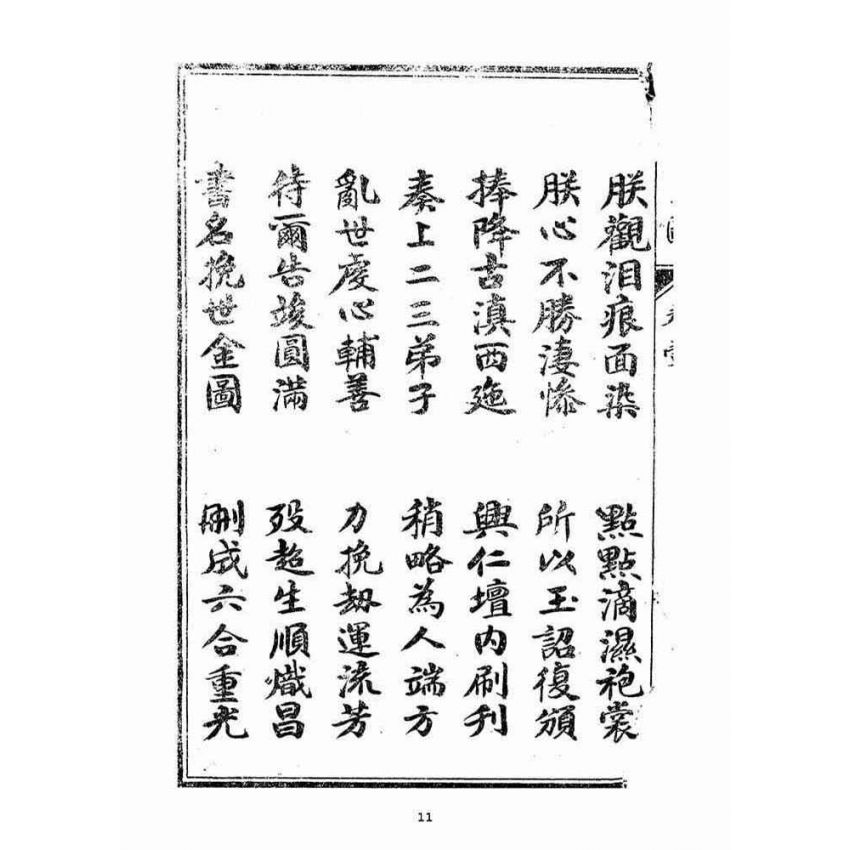 朕觀泪痕面染 點點滴濕袍裳
朕心不勝淒慘 所以玉詔復頒
捧降古滇西迤 興仁壇内刷刋
奏上二三弟子 稍略為人端方
亂世虔心輔善 力挽劫運流芳
待爾告竣圓滿 殁超生順熾昌
書名挽世金圖 刪成六合重光
11